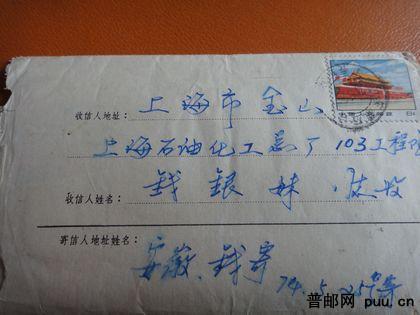 收信人地址: 上海市金山
上海石油化工总厂103工程
收信人姓名: 钱银妹
寄信人地址姓名
安徽、钱寄
74.5.25
普邮网 puu.cn